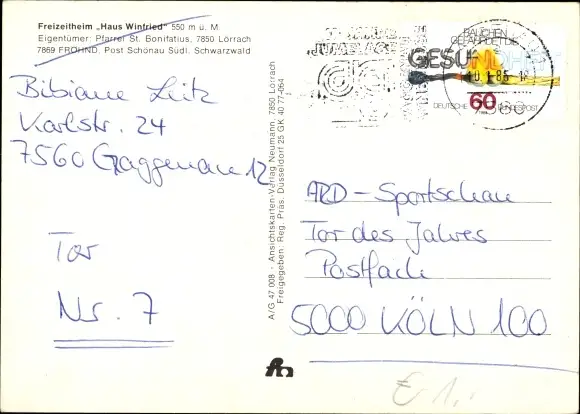 Freizeitheim „Haus Winfried" 550 m ü. M.
Eigentümer: Pfarrei St. Bonifatius, 7850 Lörrach
7869 FRÖHND, Post Schönau Südl. Schwarzwald
Bibiane Leitz
Karlstr. 24
7560 Gaggenau 12
Tor
Nr. 7
A/G 47 008 - Ansichtskarten-Verlag Neumann, 7850 Lörrach
Freigegeben: Reg. Präs. Düsseldorf 25 GK 40 77-064
RAUCHEN
GEFÄHRDET DIE
GESUNDHEIT
60
DEUTSCHE BUNDESPOST
ARD-Sportschau
Tor des Jahres
Postfach
5000 KÖLN 100
€ 1,-